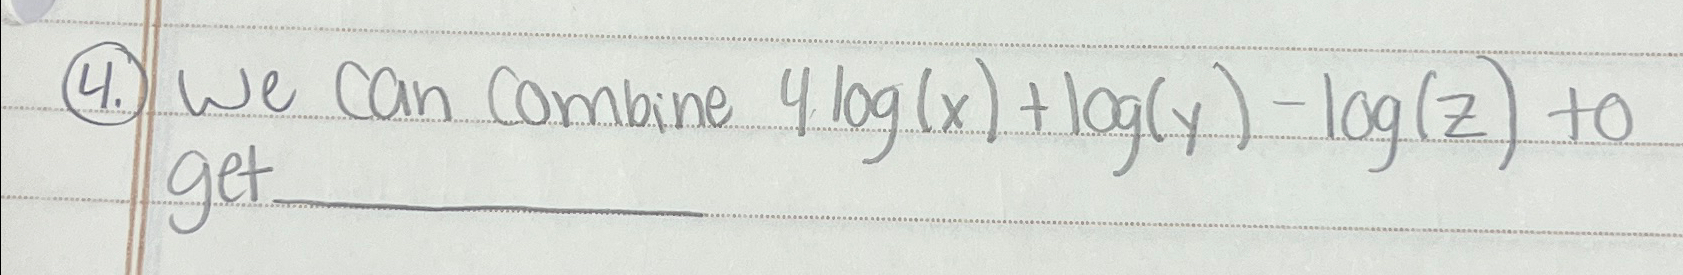 4. We can combine 4 log(x) + log(y) - log(z) to
get__________